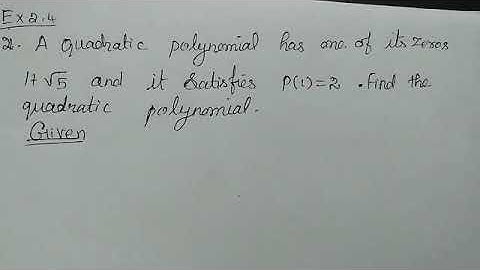 Ex 2.4
2. A quadratic polynomial has one of its zeros
1+√5 and it satisfies P(1)=2 . Find the
quadratic polynomial.
Given